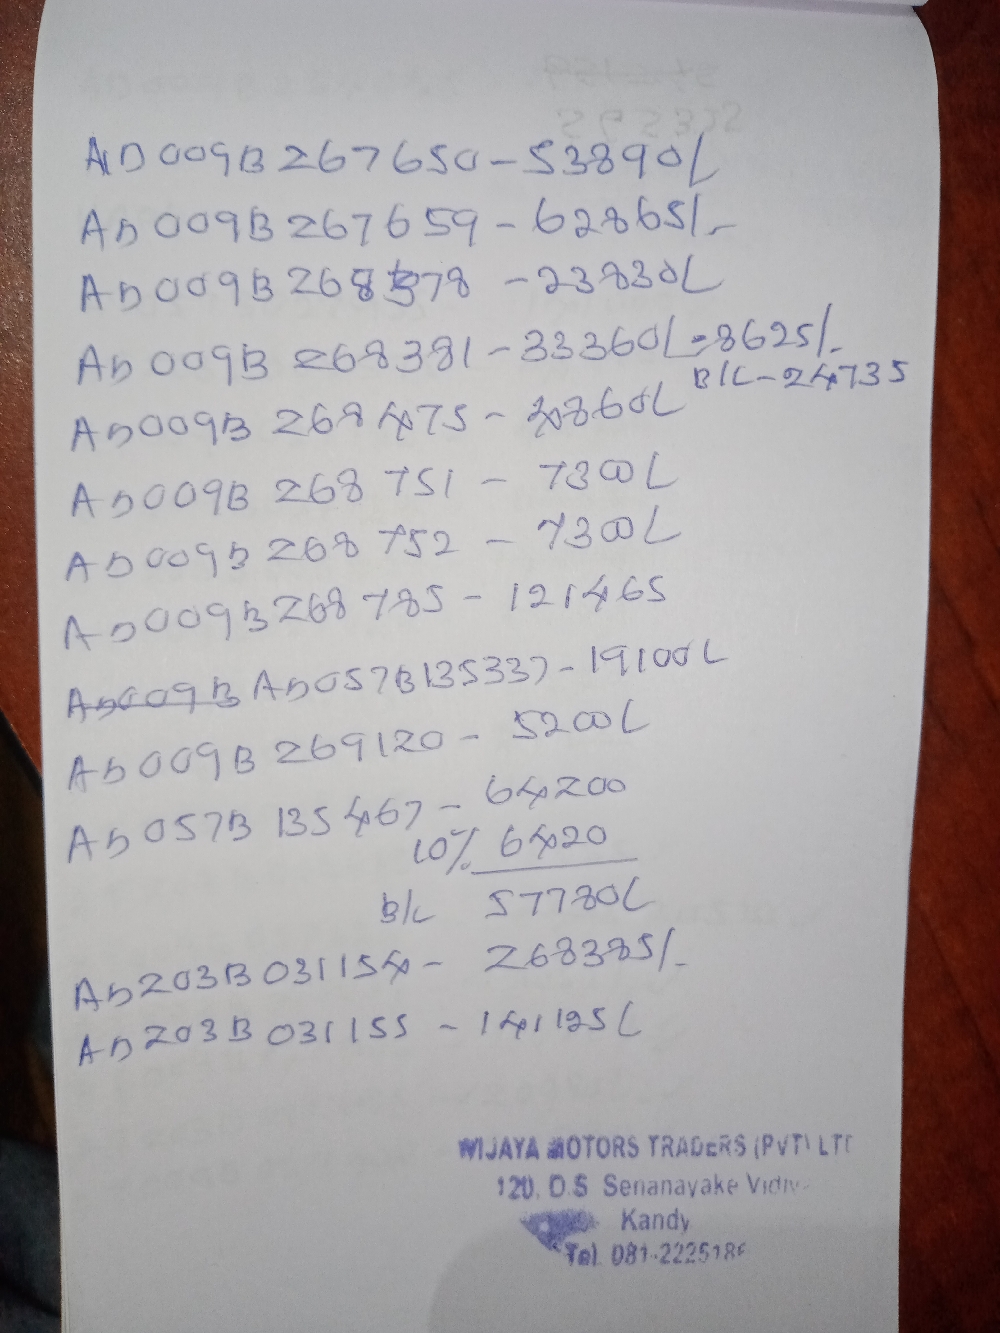 AD009B267650-53890/-
AD009B267659-62865/-
AD009B268378-23830/-
AD009B268381-33360/- - 8625/-
B/L-24735
AD009B268475-4860/-
AD009B268751-7300/-
AD009B268752-7300/-
AD009B268785-121465
AD009B AD057B135337-19100/-
AD009B269120-5200/-
AD057B135467-64200
10% 6420
B/L 57780/-
AD203B031154-268385/-
AD203B031155-141125/-
WIJAYA MOTORS TRADERS (PVT) LTD
120, D.S Senanayake
Kandy
Tel 081-2225186